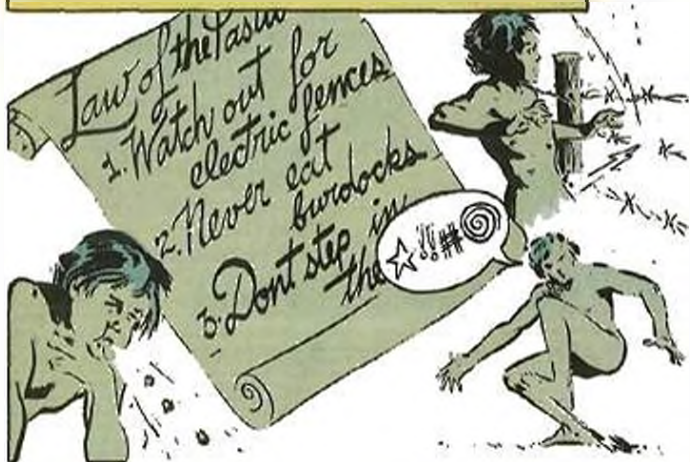 Law of the Pasture
1. Watch out for
electric fences
2. Never eat
burdocks
3. Dont step in
the